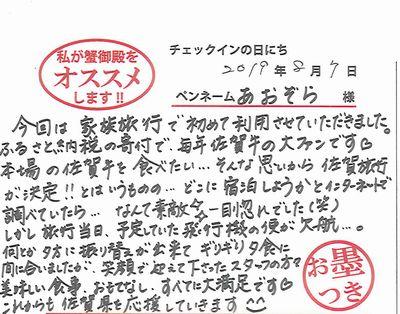 私が蟹御殿を
オススメ
します!!
チェックインの日にち
2019年8月7日
ペンネーム あおぞら 様
今回は家族旅行で初めて利用させていただきました。
ふるさと納税の寄付で、毎年佐賀牛の大ファンです♡
本場の佐賀牛を食べたい…そんな思いから佐賀旅行
が決定!!とはいうものの…どこに宿泊しようかとインターネットで
調べていたら…なんて素敵✨一目惚れでした(笑)
しかし旅行当日、予定していた飛行機の便が欠航…。
何とか夕方に振り替えが出来てギリギリ夕食に
間に合いましたが、笑顔で迎えて下さったスタッフの方々
美味しい食事、おもてなし、すべてに大満足です♡
これからも佐賀県を応援していきます
お墨
つき